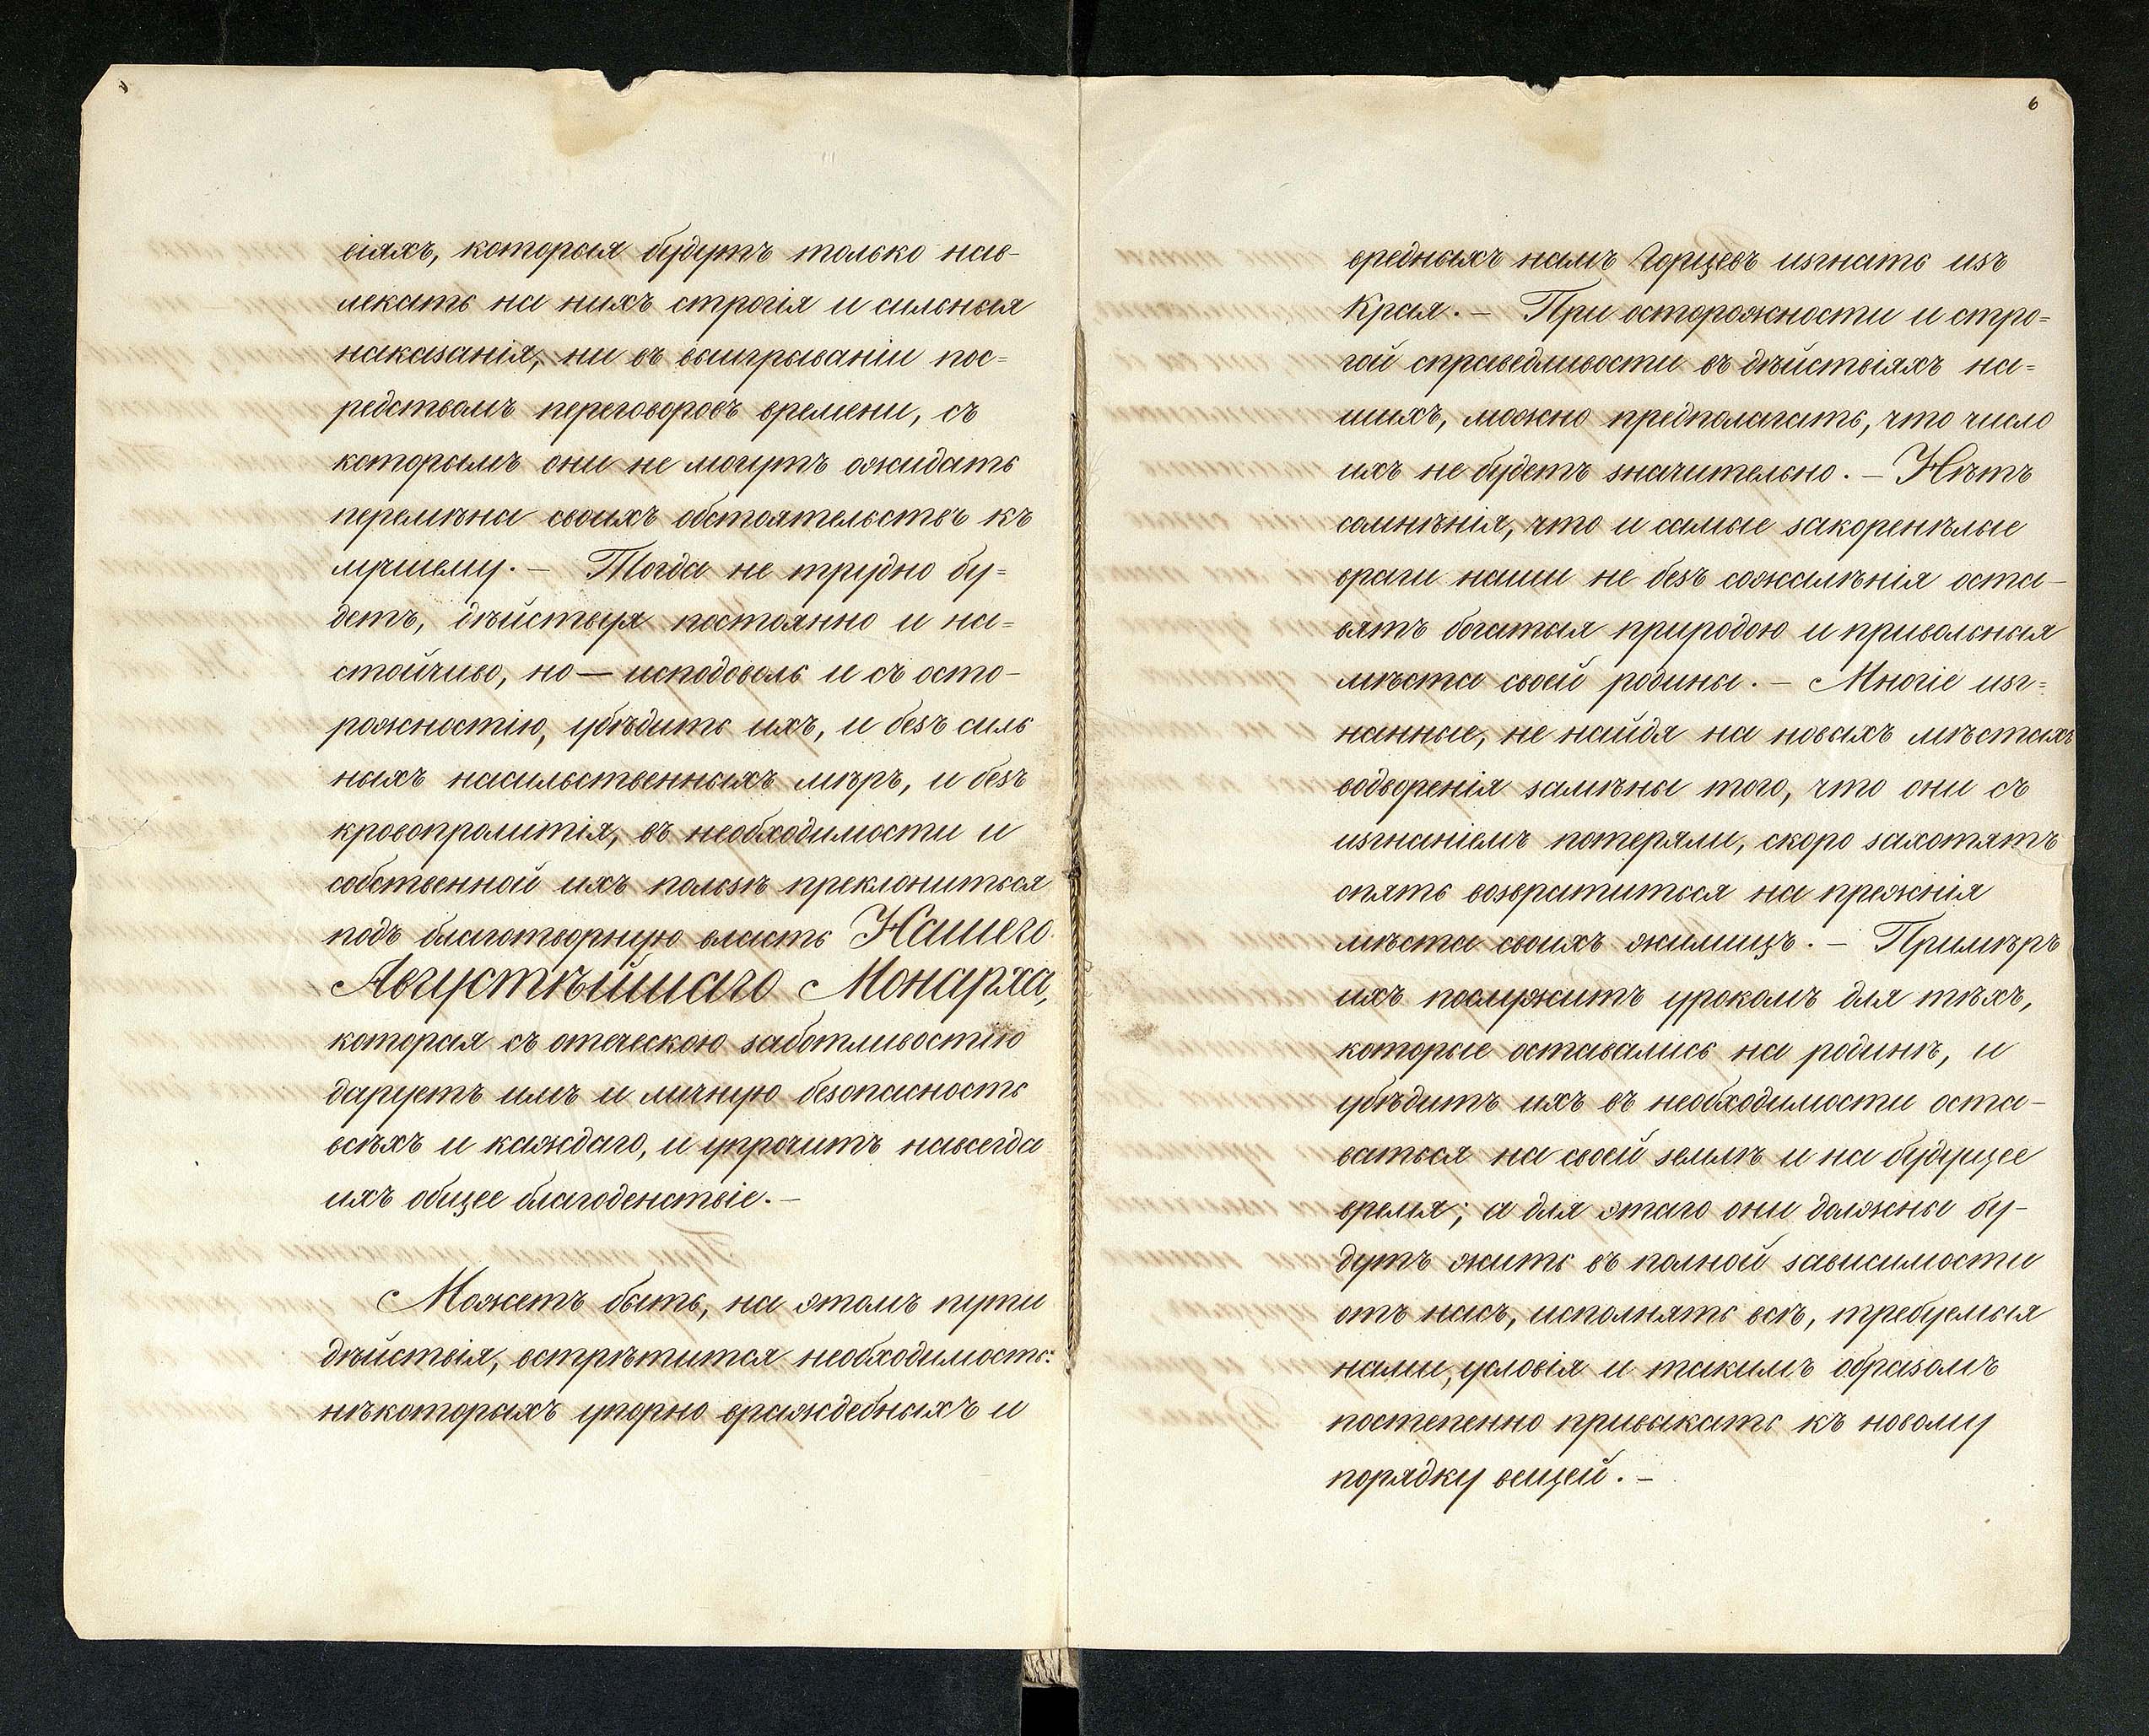 віяхъ, которыя будутъ только нав-
лекать на нихъ строгія и сильныя
наказанія, ни въ выигрываніи пос=
редствомъ переговоровъ времени, съ
которымъ они не могутъ ожидать
перемѣны своихъ обстоятельствъ къ
лучшему. — Тогда не трудно бу=
детъ, дѣйствуя постоянно и на=
стойчиво, но — исподоволь и съ осто-
рожностію, убѣдить ихъ, и безъ силь
ныхъ насильственныхъ мѣръ, и безъ
кровопролитія, въ необходимости и
собственной ихъ пользѣ преклониться
подъ благотворную власть Нашего
Августѣйшаго Монарха,
которая съ отеческою заботливостію
даруетъ имъ и личную безопасность
всѣхъ и каждаго, и упрочитъ навсегда
ихъ общее благоденствіе. —
Можетъ быть, на этомъ пути
дѣйствія, встрѣтится необходимость:
нѣкоторыхъ упорно враждебныхъ и
6
вредныхъ намъ Горцевъ изгнать изъ
Края. — При осторожности и стро=
гой справедливости въ дѣйствіяхъ на=
шихъ, можно предполагать, что число
ихъ не будетъ значительно. — Нѣтъ
сомнѣнія, что и самые закоренѣлые
враги наши не безъ сожалѣнія оста-
вятъ богатыя природою и привольныя
мѣста своей родины. — Многіе изг=
нанные, не найдя на новыхъ мѣстахъ
водворенія замѣны того, что они съ
изгнаніемъ потеряли, скоро захотятъ
опять возвратиться на прежнія
мѣста своихъ жилищъ. — Примѣръ
ихъ послужитъ урокомъ для тѣхъ,
которые оставались на родинѣ, и
убѣдитъ ихъ въ необходимости оста-
ваться на своей землѣ и на будущее
время; а для этаго они должны бу-
дутъ жить въ полной зависимости
отъ насъ, исполнять всѣ, требуемыя
нами, условія и такимъ образомъ
постепенно привыкать къ новому
порядку вещей. —